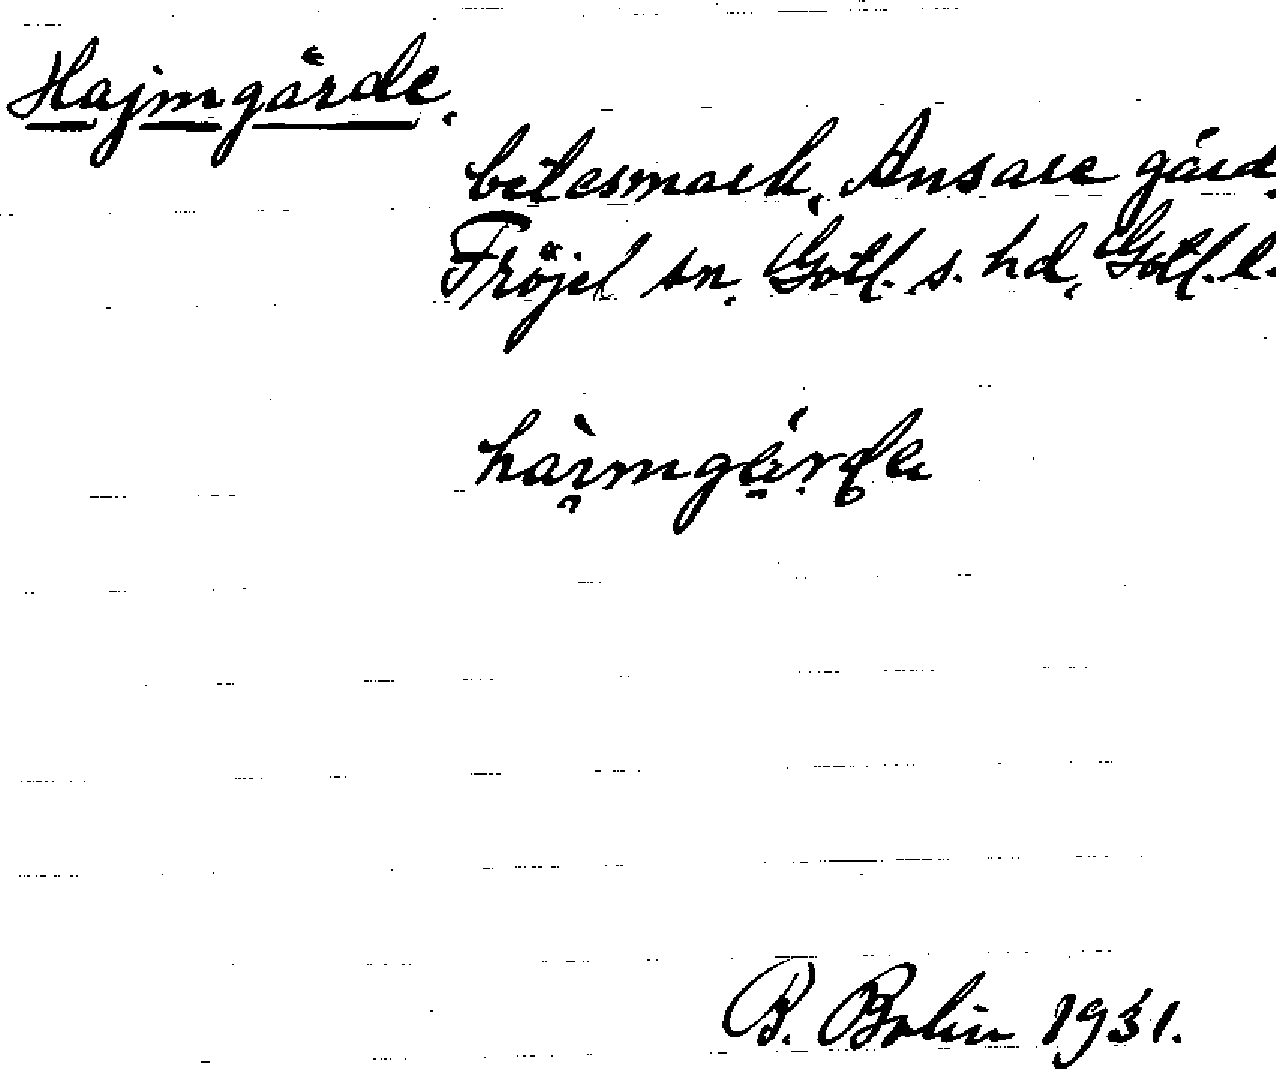 Hajmgärde.
betesmark, Ansare gård,
Fröjel sn, Gotl. s. hd, Gotl. l.
hàı̯mgä́rda
B. Bolin 1931.